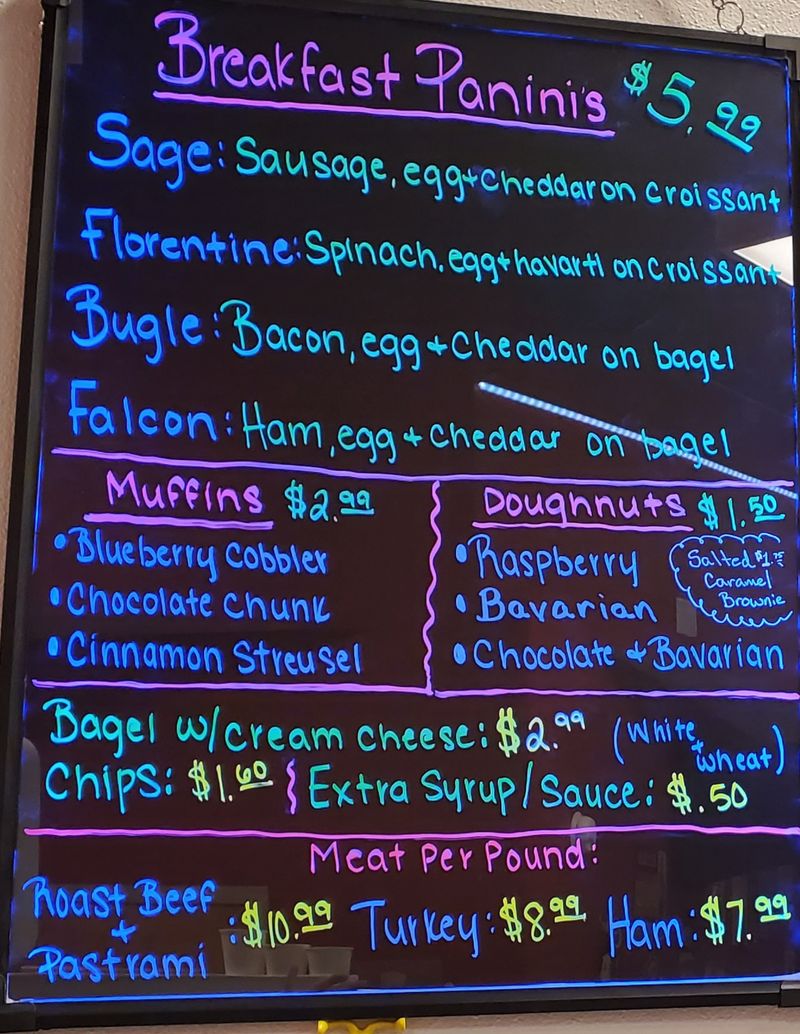 Breakfast Panini's $5.99
Sage: Sausage, egg + Cheddar on Croissant
Florentine: Spinach, egg + havarti on Croissant
Bugle: Bacon, egg + Cheddar on bagel
Falcon: Ham, egg + Cheddar on bagel
Muffins $2.99
• Blueberry Cobbler
• Chocolate Chunk
• Cinnamon Streusel
Doughnuts $1.50
• Raspberry
• Bavarian
• Chocolate + Bavarian
Salted $1.75
Caramel
Brownie
Bagel w/cream cheese: $2.99 (White + wheat)
Chips: $1.60 Extra Syrup/Sauce: $.50
Meat Per Pound:
Roast Beef
+
Pastrami
: $10.99 Turkey: $8.99 Ham: $7.99